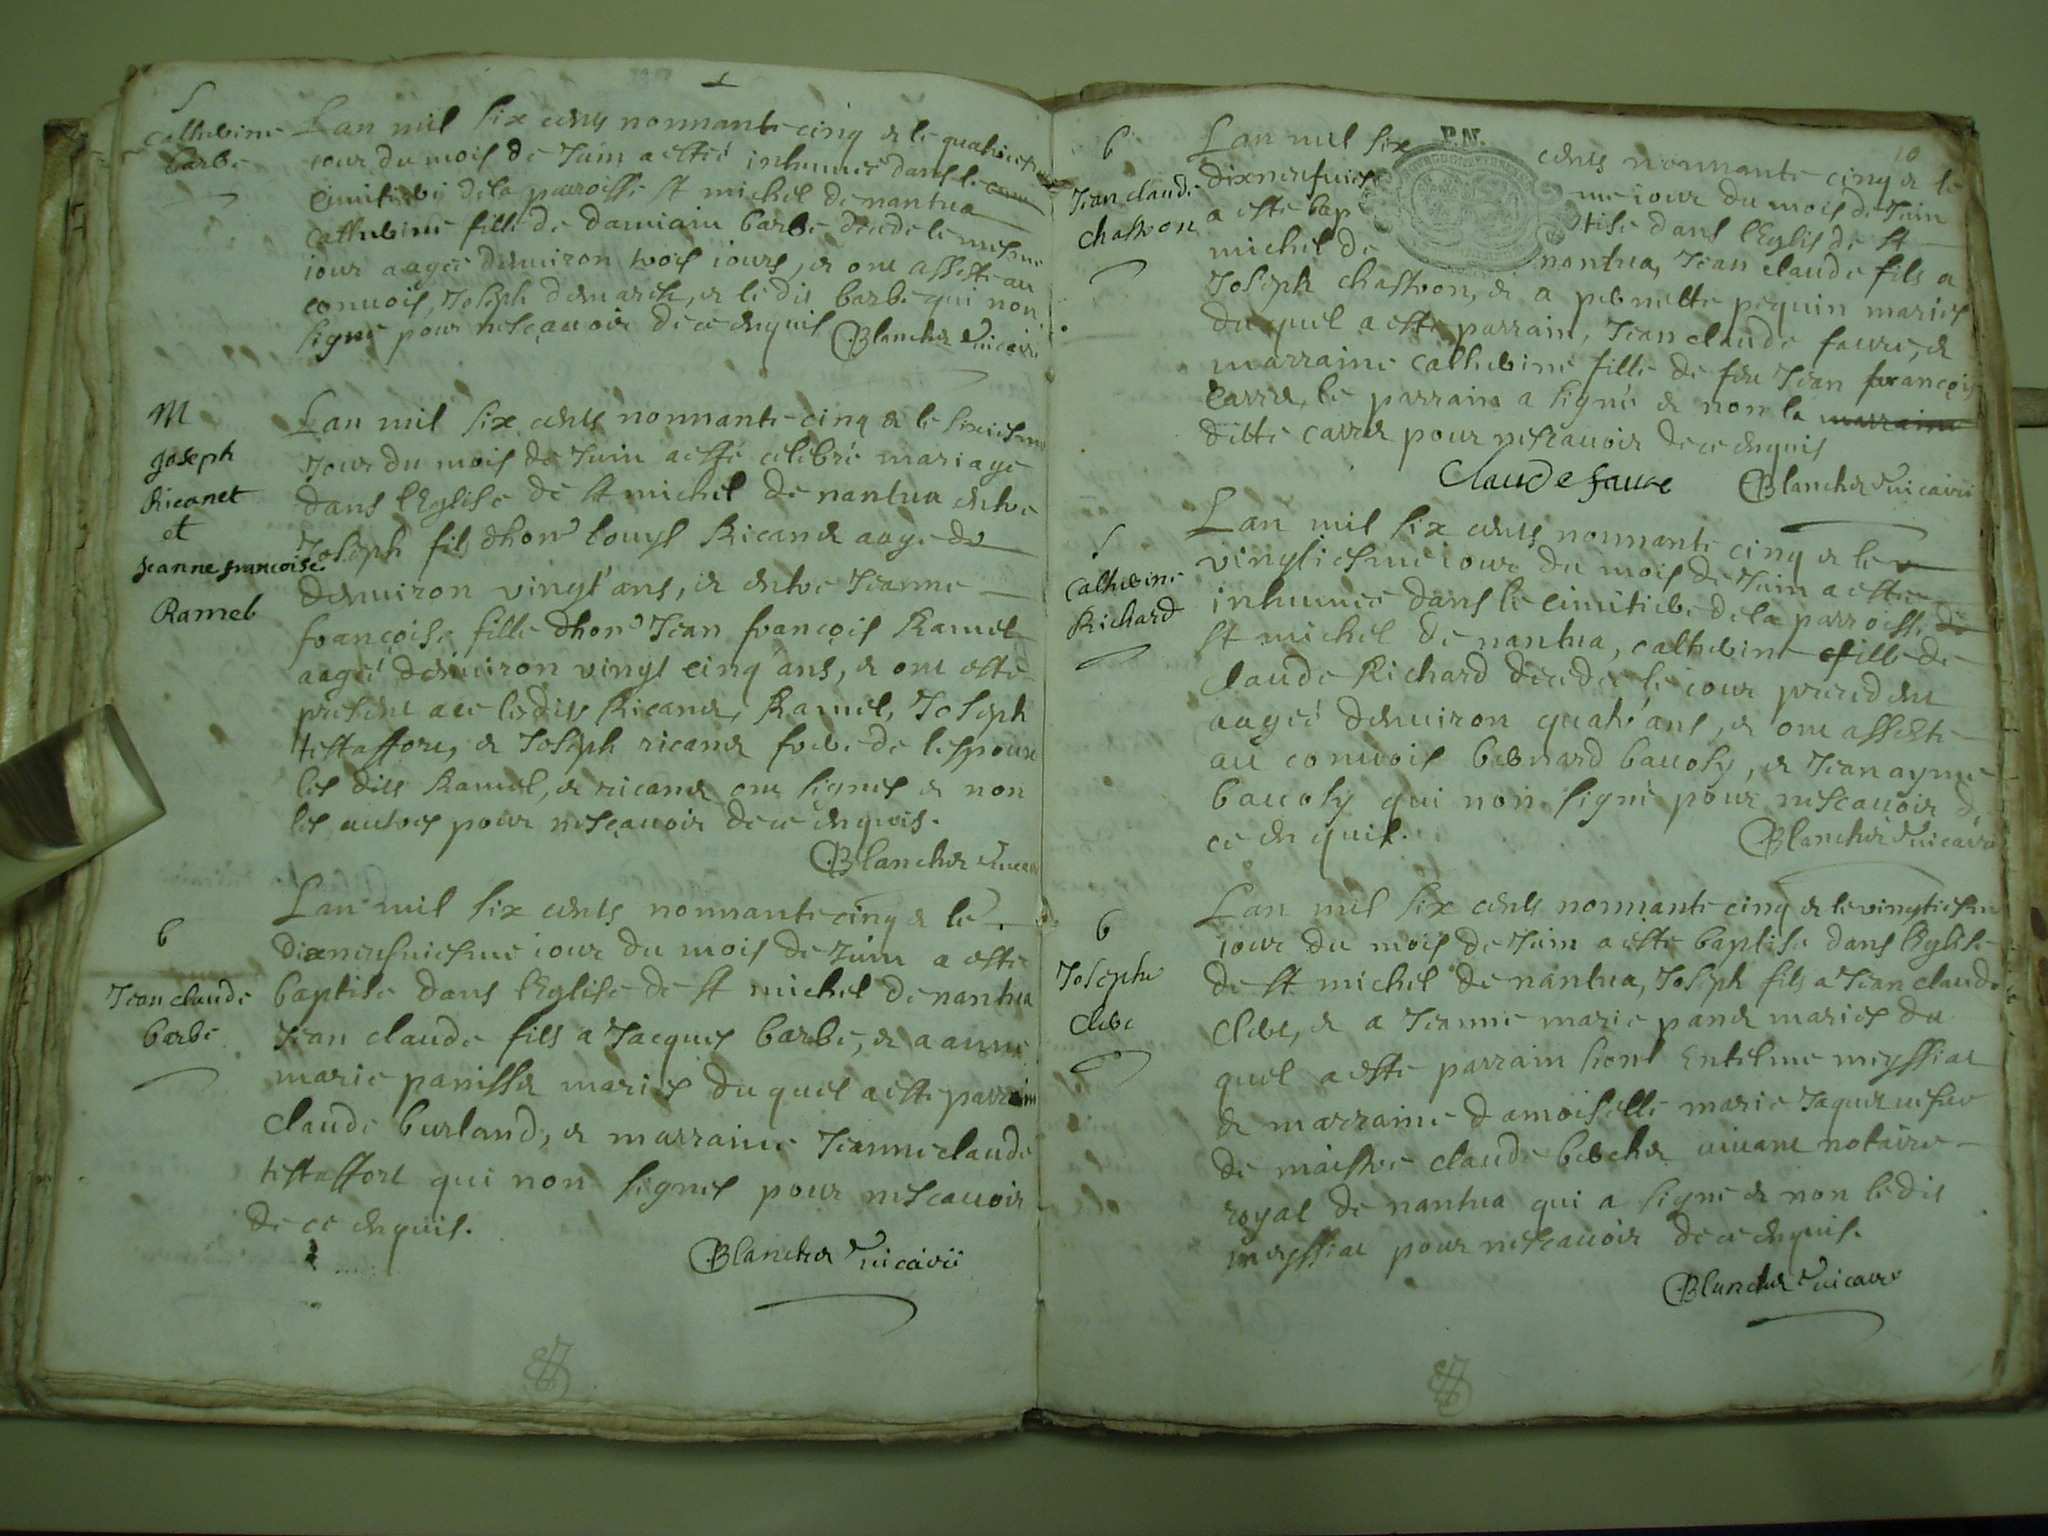 S
Catherine
barbe
Lan mil six cents nonnante cinq et le quatriesme
jour du mois de Juin a esté inhumée dans le
cimitiere de la parroisse st michel de nantua
catherine fille de damiain barbe decede le mesme
jour aagée denuiron trois jours, et ont assisté au
conuois, Joseph demarest, et le dit barbe qui non
signé pour nescauoir de ce enquis Blanchet Vicaire
M
joseph
Ricanet
et
jeanne francoise
Ramel
Lan mil six cents nonnante cinq et le
Jour du mois de Juin a esté celebré mariage
dans lEglise de st michel de nantua entre
Joseph fils dhon louys Ricanet aage de
denuiron vingt ans, et entre Jeanne
francoise fille dhon Jean francois Ramel
aagée denuiron vingt cinq ans, et ont esté
present a ce lesdits Ricanet, Ramel, Joseph
testaffort, et Joseph ricanet frere de lespoux
les dits Ramel, et ricanet ont signes et non
les autres pour nescauoir de ce enquis.
Blanchet Vicaire
b
Jean claude
barbe
Lan mil six cents nonnante cinq et le
dixneufuiesme jour du mois de Juin a esté
baptise dans lEglise de st michel de nantua
Jean claude fils a Jacques barbe, et a anne
marie panisset maries du quel a esté parrain
claude burland, et marraine Jeanne claude
testaffort qui non signes pour nescauoir
de ce enquis.
Blanchet Vicaire
10
P.N.
b
Jean claude
chastron
Lan mil six cents nonnante cinq et le
dixneufuiesme jour du mois de Juin
a esté baptise dans lEglise de st
michel de nantua, Jean claude fils a
Joseph chastron, et a pernette pequin maries
du quel a esté parrain, Jean claude faure, et
marraine catherine fille de feu Jean francois
carret, le parrain a signé et non la marraine
ditte carret pour nescauoir de ce enquis
Claude faure Blanchet Vicaire
S
Catherine
Richard
Lan mil six cents nonnante cinq et le v
vingtiesme jour du mois de Juin a esté
inhumée dans le cimitiere de la parroisse de
st michel de nantua, catherine fille de
claude Richard decedee le jour precedent
aagée denuiron quatre ans, et ont assisté
au conuois bernard baucosy, et Jean ayme
baucosy qui non signé pour nescauoir d
ce enquis.
Blanchet Vicaire
b
Josephe
Clere
Lan mil six cents nonnante cinq et le vingtiesme
jour du mois de Juin a esté baptise dans lEglise
de st michel de nantua, Joseph fils a Jean claude
clere, et a Jeanne marie panet maries du
quel a esté parrain hont Entelme meyssiat
et marraine damoiselle marie Jaquet uefue
de maistre claude berchet uiuant notaire
royal de nantua qui a signé et non ledit
meyssiat pour nescauoir de ce enquis.
Blanchet Vicaire